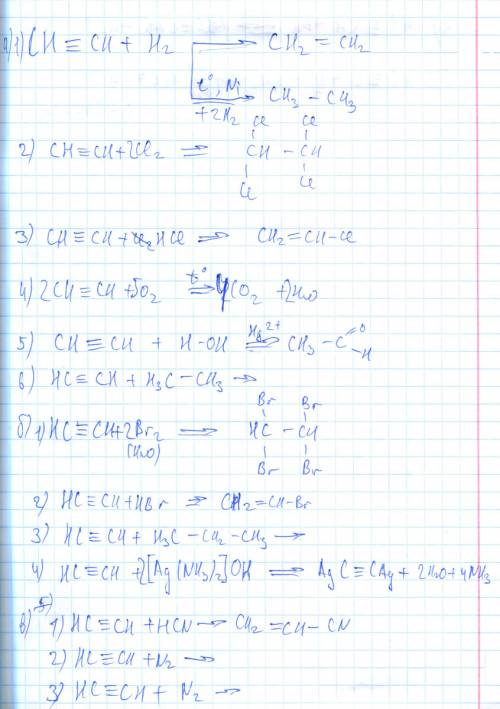 а) 1) CH ≡ CH + H₂ → CH₂ = CH₂
t°, Ni
+2H₂ → CH₃ – CH₃
2) CH ≡ CH + 2Cl₂ ⇒ CH – CH
Cl Cl
Cl Cl
3) CH ≡ CH + HCl → CH₂ = CH – Cl
4) 2CH ≡ CH + 5O₂ t° ⇒ 4CO₂ + 2H₂O
5) CH ≡ CH + H–OH Hg²⁺ → CH₃ – C =O –H
6) HC ≡ CH + H₃C – CH₃ →
Br Br
б) 1) HC ≡ CH + 2Br₂ ⇒ HC – CH
(H₂O)
Br Br
2) HC ≡ CH + HBr ⇒ CH₂ = CH – Br
3) HC ≡ CH + H₃C – CH₂ – CH₃ →
4) HC ≡ CH + 2[Ag(NH₃)₂]OH ⇒ AgC ≡ CAg + 2H₂O + 4NH₃
в) 1) HC ≡ CH + HCN → CH₂ = CH – CN
2) HC ≡ CH + N₂ →
3) HC ≡ CH + N₂ →